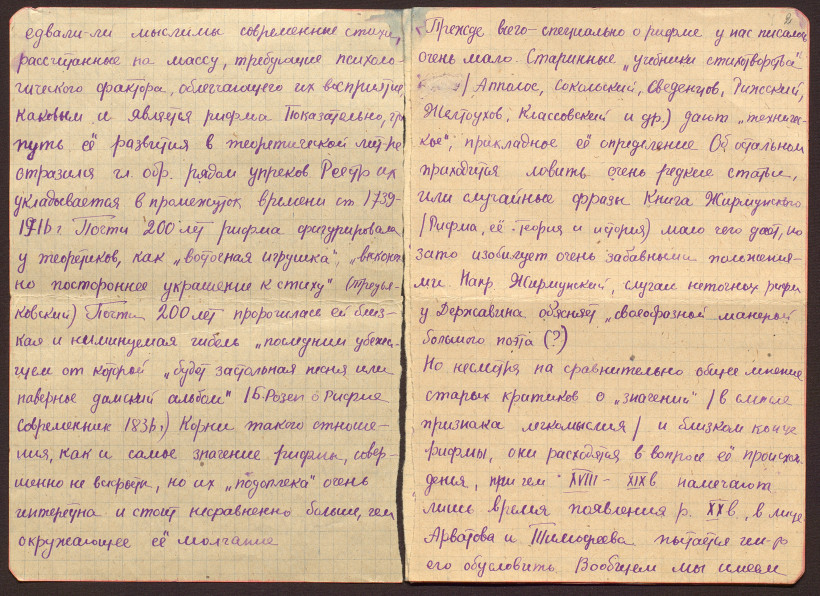 едвали-ли мыслимы современные стихи,
рассчитанные на массу, требующие психоло-
гического фактора, облегчающего их восприятие
каковым и является рифма Показательно, что
путь её развития в теоретической лит-ре
отразился гл. обр. рядом упреков Реестр их
укладывается в промежуток времени от 1739-
1916 г Почти 200 лет рифма фигурировала
у теоретиков, как „вотосная игрушка",
но постороннее украшение к стиху" (Тредья-
ковский) Почти 200 лет пророчилась ей близ-
кая и неминуемая гибель „последним убежи-
щем от которой „будет застольная песня или
наверное дамский альбом" /Б. Розен о Рифме
Современник 1836./ Корни такого отноше-
ния, как и самое значение рифмы, совер-
шенно не вскрыты, но их „подоплека" очень
интересна и стоит несравненно больше, чем
окружающее её молчание
2
Прежде всего - специально о рифме у нас писалось
очень мало. Старинные „учебники стихотворства"
/Апполос, Сокольский, Сведенцов, Рижский,
Желтоухов, Классовский и др.) дают „техничес-
кое", прикладное её определение Об остальном
приходится ловить очень редкие статьи,
или случайные фразы Книга Жирмунского
/Рифма, её теория и история) мало чего даёт, но
зато изобилует очень забавными положения-
ми. Напр Жирмунский, случаи неточных рифм
у Державина объясняет „своеобразной манерой
большого поэта (?)
Но несмотря на сравнительно общее мнение
старых критиков о „значении" /в смысле
признака легкомыслия/ и близком конце
рифмы, они расходятся в вопросе её происхож-
дения, при чем XVIII - XIX в намечают
лишь время появления р. XX в, в лице
Арватова и Тимофеева пытается чем-р
его обусловить. Вообщем мы имеем